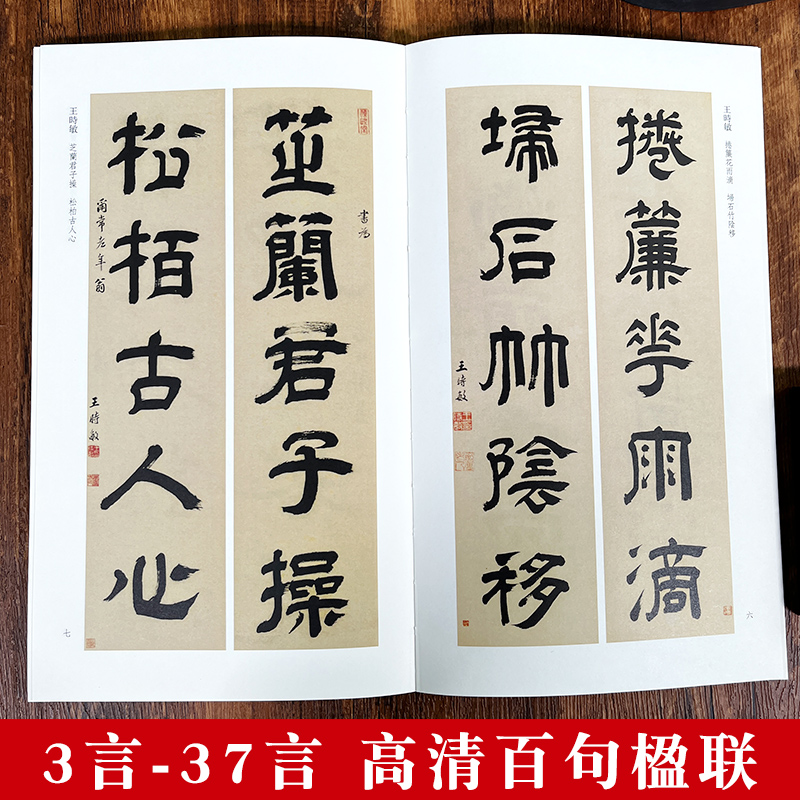 王時敏 捲簾花雨滴 埽石竹陰移
捲簾花雨滴
埽石竹陰移
王時敏
六
書為
芝蘭君子操
松栢古人心
爾常老年翁
王時敏
王時敏 芝蘭君子操 松柏古人心
七
3言-37言 高清百句楹联